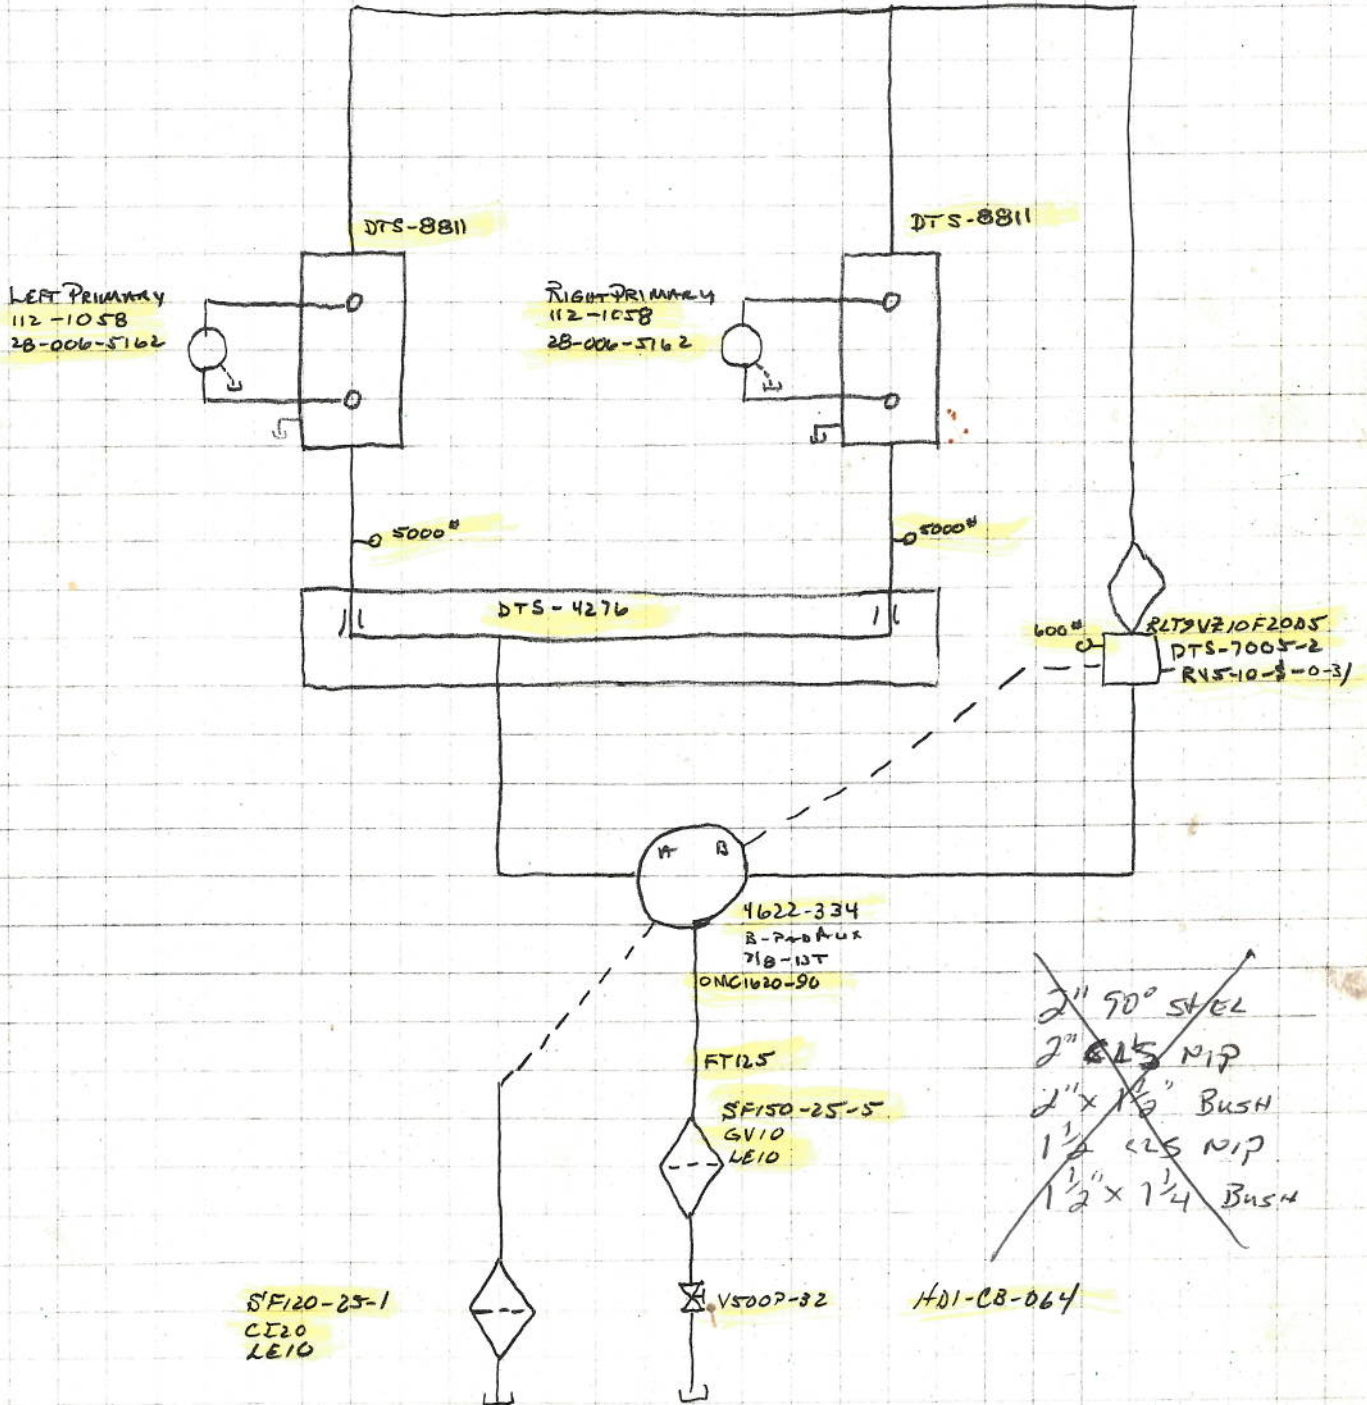 DTS-8811
DTS-8811
LEFT PRIMARY
112-1058
28-006-5162
RIGHT PRIMARY
112-1058
28-006-5162
5000#
5000#
DTS-4276
600#
DTS-7005-2
A B
4622-334
7/8-13T
OMC1620-90
FT125
SF150-25-5
GV10
LE10
2" 90° ST EL
2" CLS NIP
2" x 1 1/2" BUSH
1 1/2 CLS NIP
1 1/2" x 1 1/4 BUSH
SF120-25-1
CI20
LE10
V500P-32
HDI-CB-064